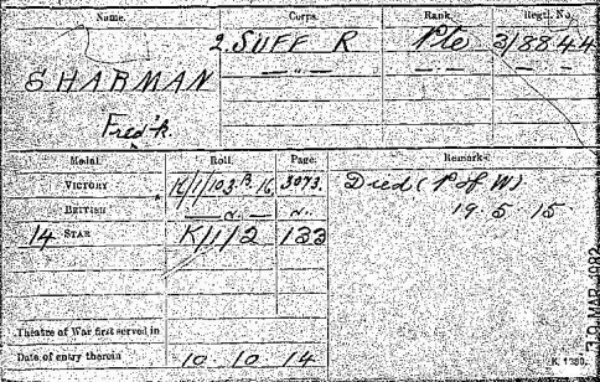 Name. Corps. Rank. Regtl. No.
2. SUFF R Pte 3/8844
SHARMAN —"— —.— —.—
Fred'k.
Medal. Roll. Page. Remarks.
VICTORY K/1/103.B.16 3073. Died (P of W)
BRITISH —"— ". 19.5.15
14 STAR K/1/2 133
Theatre of War first served in
Date of entry therein 10.10.14
K 1380.
30 MAR 1982